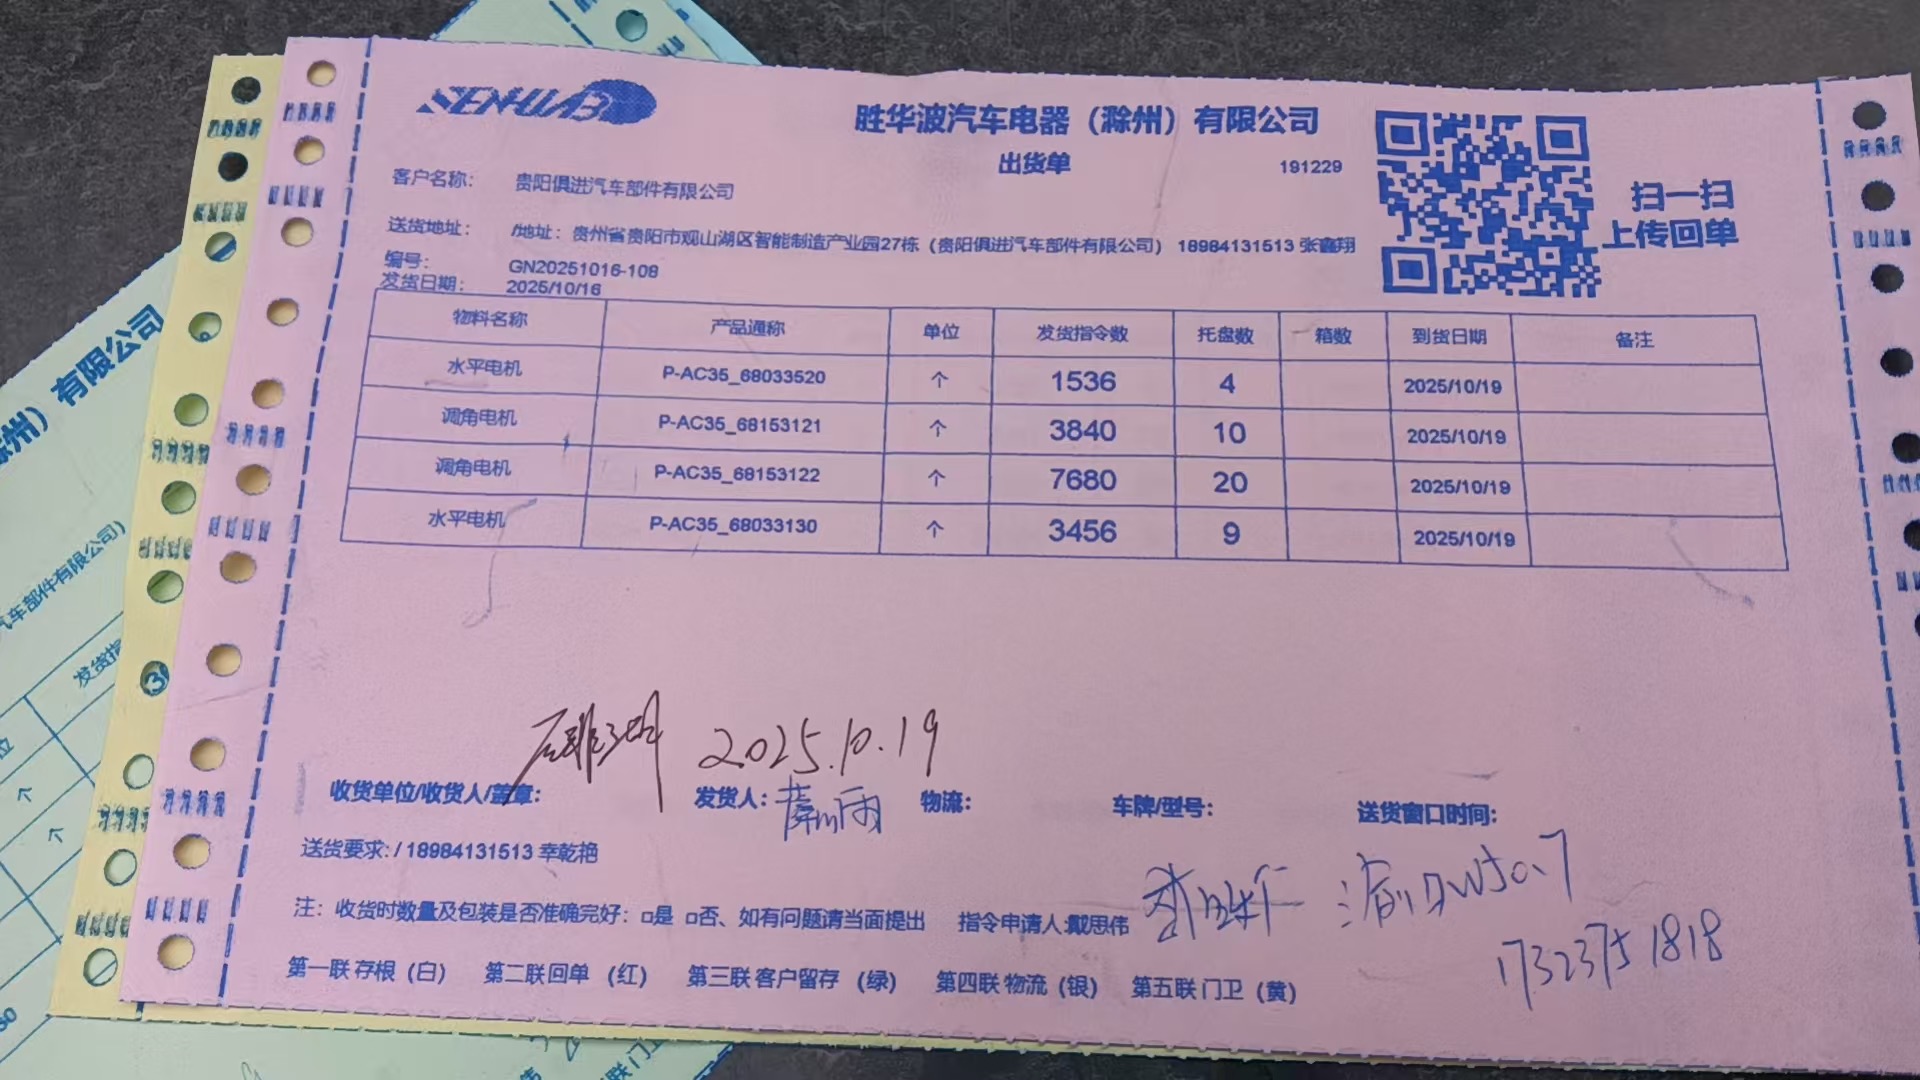 SENHUAB
胜华波汽车电器（滁州）有限公司
出货单
191229
扫一扫
上传回单
客户名称： 贵阳俱进汽车部件有限公司
送货地址： /地址：贵州省贵阳市观山湖区智能制造产业园27栋（贵阳俱进汽车部件有限公司） 18984131513 张鑫翔
编号： GN20251016-108
发货日期： 2025/10/16
物料名称 产品通称 单位 发货指令数 托盘数 箱数 到货日期 备注
水平电机 P-AC35_68033520 个 1536 4 2025/10/19
调角电机 P-AC35_68153121 个 3840 10 2025/10/19
调角电机 P-AC35_68153122 个 7680 20 2025/10/19
水平电机 P-AC35_68033130 个 3456 9 2025/10/19
2025.10.19
收货单位/收货人/盖章： 发货人： 物流： 车牌/型号： 送货窗口时间：
送货要求：/ 18984131513 幸乾艳
注：收货时数量及包装是否准确完好：□是 □否、如有问题请当面提出 指令申请人:戴思伟
17323751818
第一联 存根（白） 第二联 回单 （红） 第三联 客户留存 （绿） 第四联 物流（银） 第五联 门卫（黄）
州）有限公司
汽车部件有限公司）
发货指
个
个